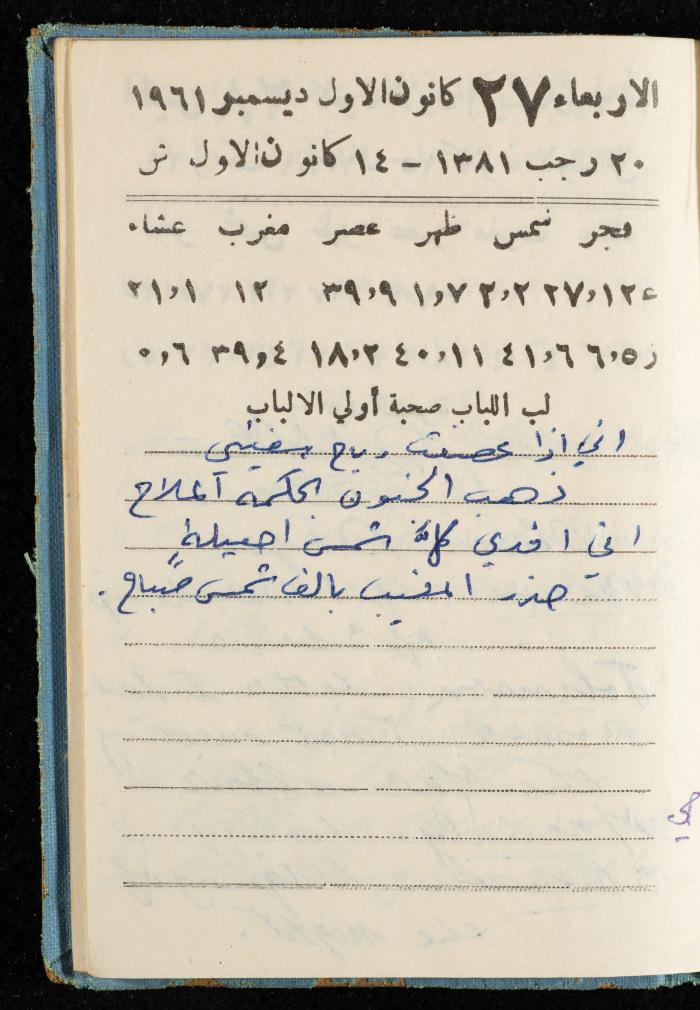 الاربعاء ٢٧ كانون الاول ديسمبر ١٩٦١
٢٠ رجب ١٣٨١ - ١٤ كانون الاول ش
فجر شمس ظهر عصر مغرب عشاء
ع ١٢،٢٧ ٢،٢ ٧،١ ٩،٣٩ ١٢ ١،٢١
ز ٥،٦ ٦،٤١ ١١،٤٠ ٢،١٨ ٤،٣٩ ٦،٠
لب اللباب صحبة أولي الالباب
اني اذا عصفت رياح سفينتي
ذهب الجنون بحكمة الملاح
اني افدي كل شمس اصيلة
حذر المغيب بالف شمس صباح .